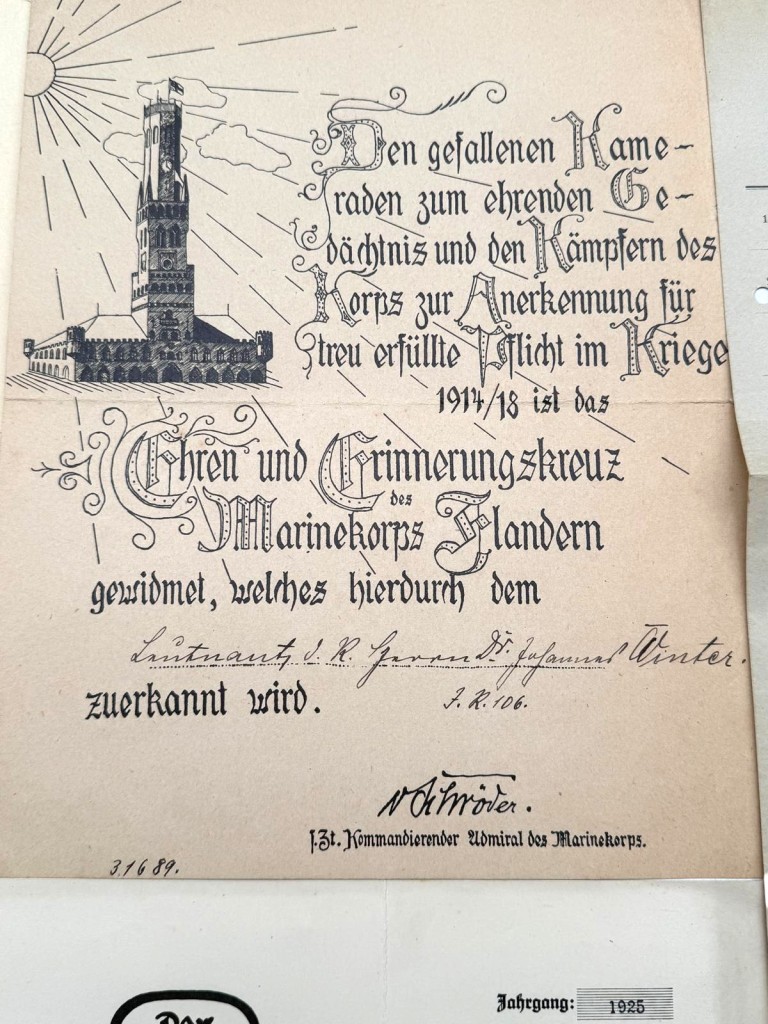 Den gefallenen Kame-
raden zum ehrenden Ge-
dächtnis und den Kämpfern des
Korps zur Anerkennung für
treu erfüllte Pflicht im Kriege
1914/18 ist das
Ehren und Erinnerungskreuz
des
Marinekorps Flandern
gewidmet, welches hierdurch dem
Leutnant d. R. Herrn Dr. Johannes Winter.
zuerkannt wird.
J. R. 106.
v Schröder.
s. Zt. Kommandierender Admiral des Marinekorps.
31689.
Jahrgang: 1925